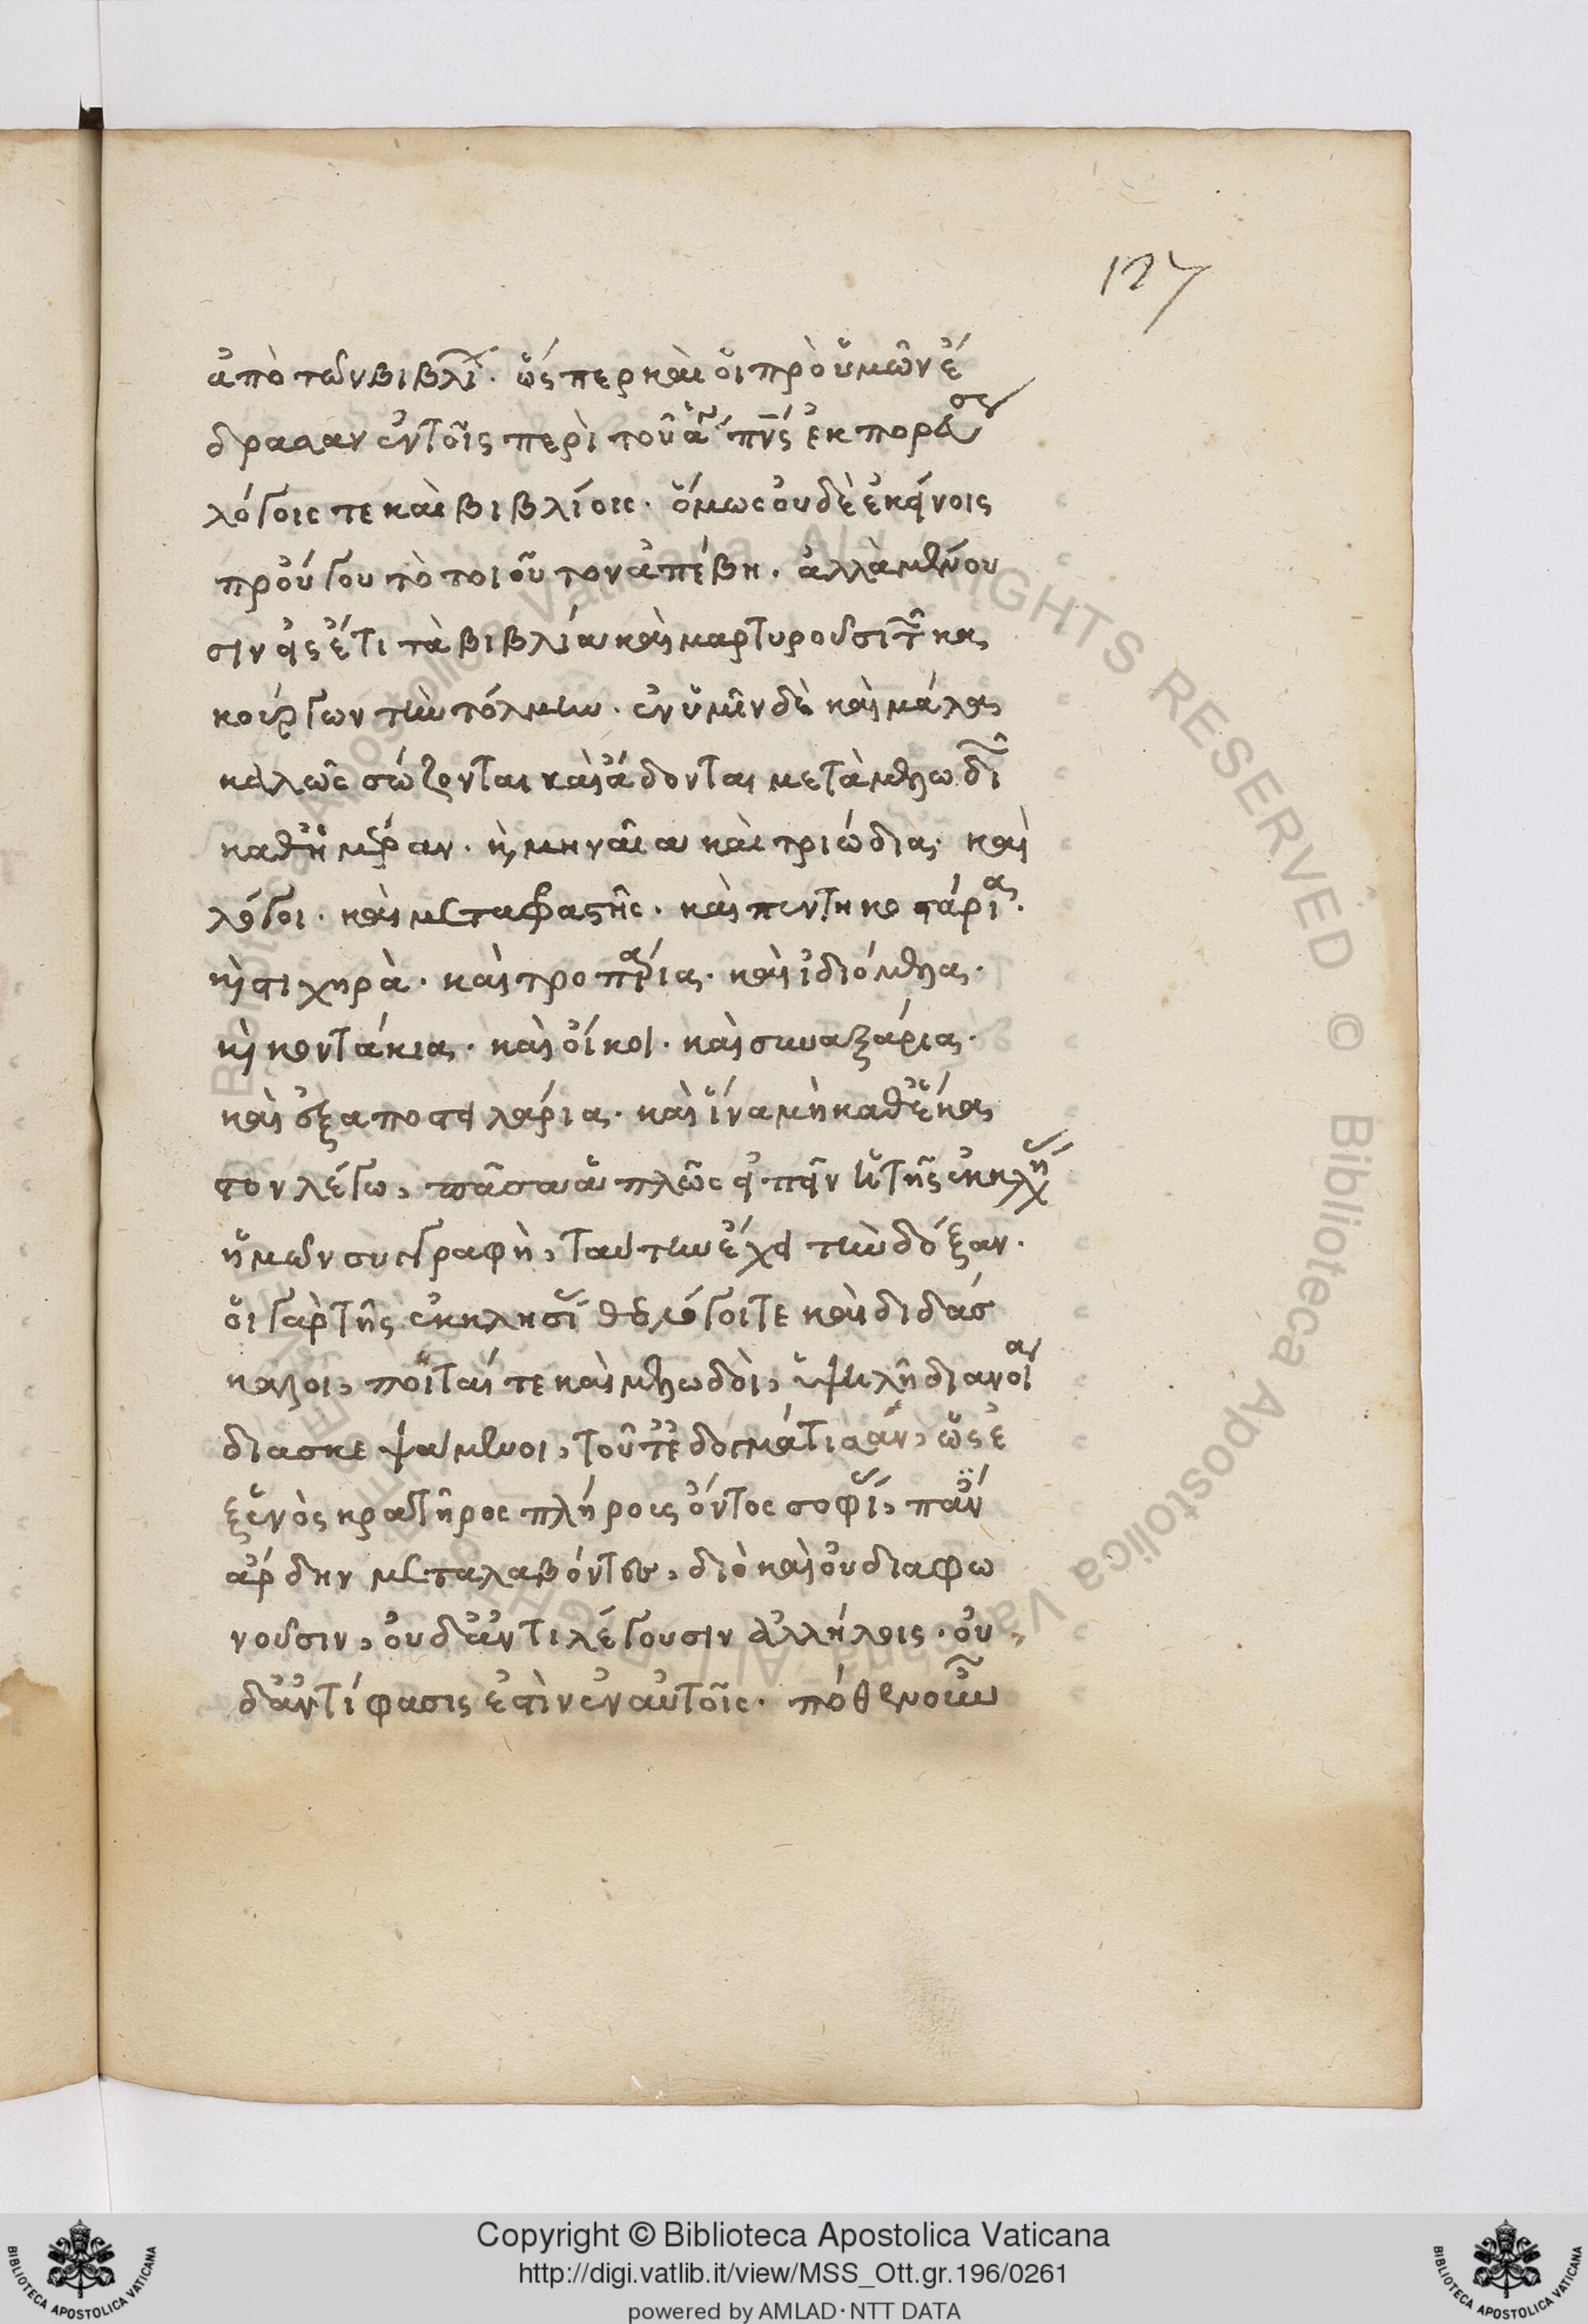 127
ἀπὸ τῶν βιβλί. ὥσπερ καὶ οἱ πρὸ ὑμῶν ἔ
δρασαν ἐν τοῖς περὶ τοῦ ἁγ πνς ἐκπορεύσε
λόγοις τε καὶ βιβλίοις. ὅμως οὐδὲ ἐκείνοις
προὔργου τὸ τοιοῦτον ἀπέβη. ἀλλὰ μένου
σιν εἰς ἔτι τὰ βιβλία καὶ μαρτυροῦσι τῶν κα
κούργων τὴν τόλμην. ἐν ὑμῖν δὲ καὶ μάλα
καλῶς σώζονται καὶ ἄδονται μετὰ μελωδι
καθ' ἡμέραν. καὶ μηναῖα καὶ τριώδια. καὶ
λόγοι. καὶ μεταφραστής. καὶ πεντηκοστάρια.
καὶ στιχηρὰ. καὶ τροπάρια. καὶ ἰδιόμελα.
καὶ κοντάκια. καὶ οἶκοι. καὶ συναξάρια.
καὶ ἐξαποστειλάρια. καὶ ἵνα μὴ καθ' ἕκα
στον λέγω, πᾶσα ἁπλῶς εἰπεῖν ἡ τῆς ἐκκλη
ἡμῶν συγγραφὴ, ταύτην ἔχει τὴν δόξαν.
οἱ γὰρ τῆς ἐκκλησί θεολόγοι τε καὶ διδάσ
καλοι, ποιηταί τε καὶ μελωδοὶ, ὑψηλῇ διανοία
διασκεψάμενοι, τοῦτ' ἐδογμάτισαν, ὡς ἐ
ξ ἑνὸς κρατῆρος πλήρους ὄντος σοφί, παν
άρδην μεταλαβόντες, διὸ καὶ οὐ διαφω
νοῦσιν, οὐδ' ἀντιλέγουσιν ἀλλήλοις. οὐ
δ' ἀντίφασις ἐστὶν ἐν αὐτοῖς. πόθεν οὖν
Copyright © Biblioteca Apostolica Vaticana
http://digi.vatlib.it/view/MSS_Ott.gr.196/0261
powered by AMLAD·NTT DATA
BIBLIOTECA APOSTOLICA VATICANA
BIBLIOTECA APOSTOLICA VATICANA